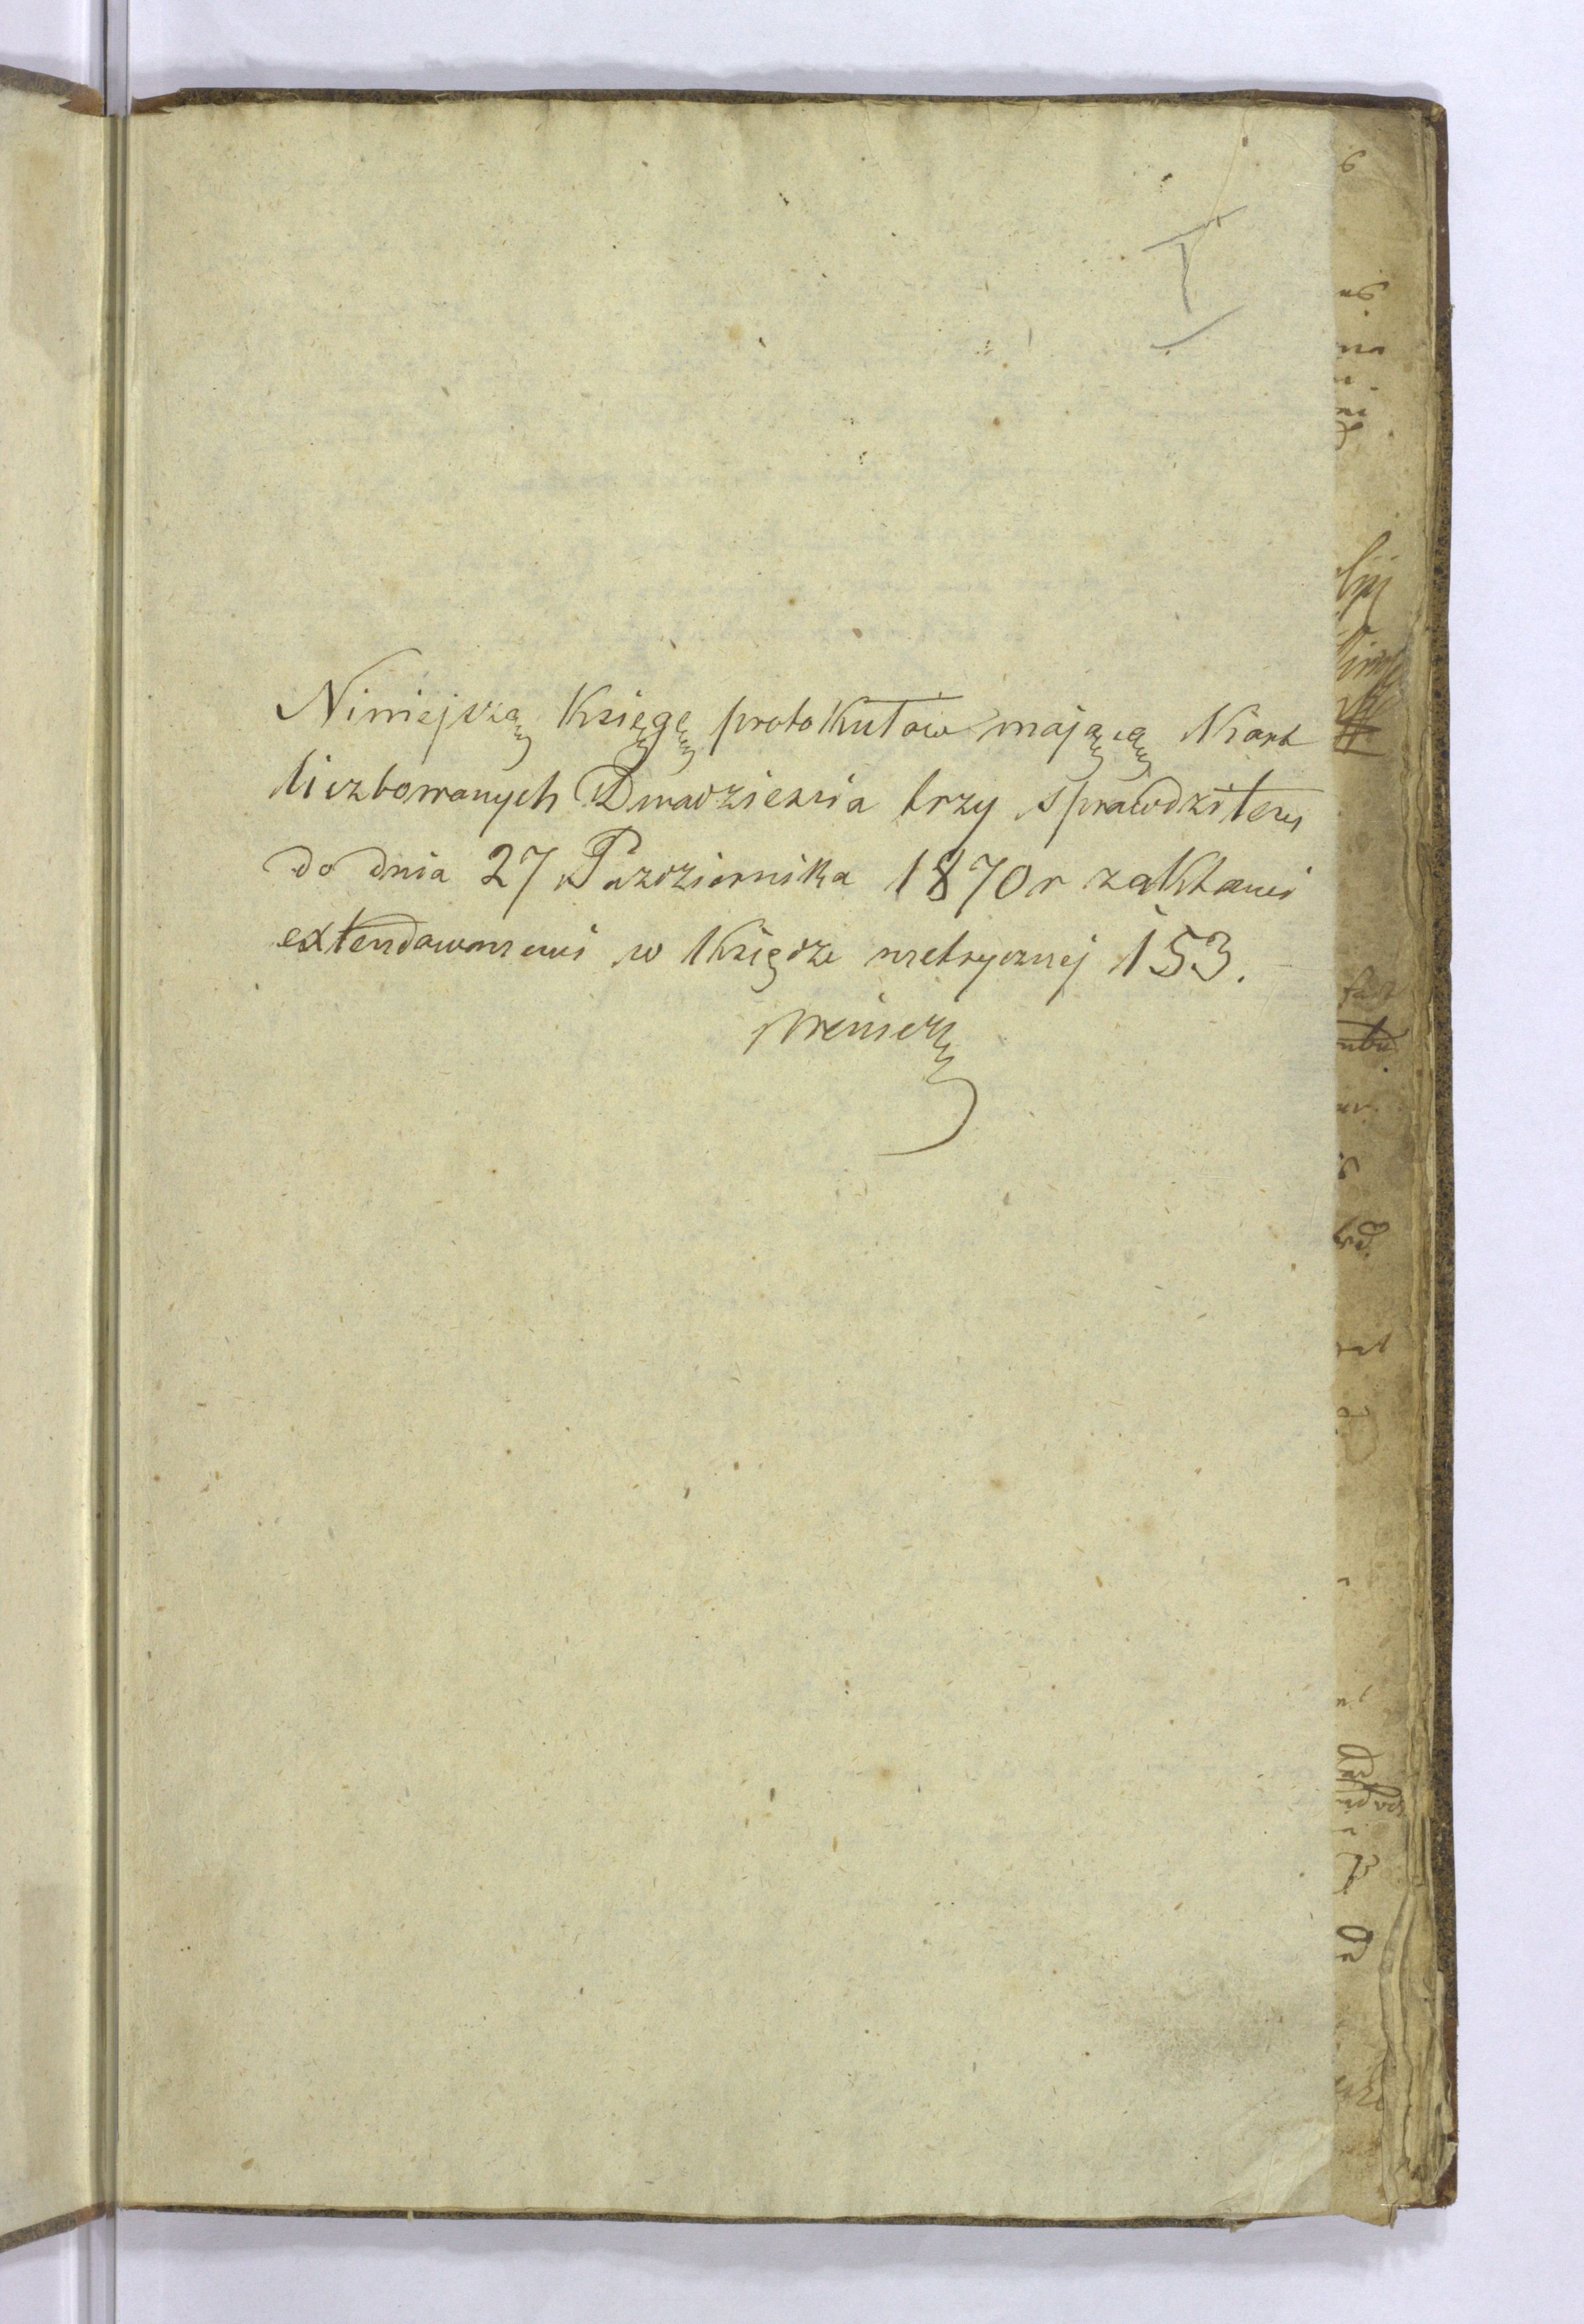 I
Niniejszą Księgę protokułów mającą Kart
liczbowanych Dwadzieścia trzy sprawdziłem
do dnia 27 Pazdziernika 1870 r z aktami
extendowanemi w Księdze metrycznej 153.